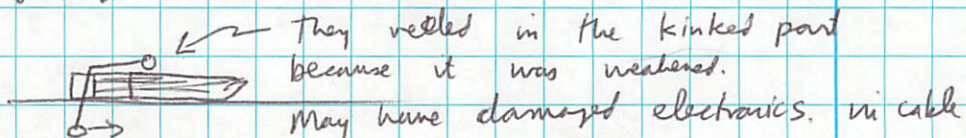 They reeled in the kinked part
because it was weakened.
May have damaged electronics. in cable